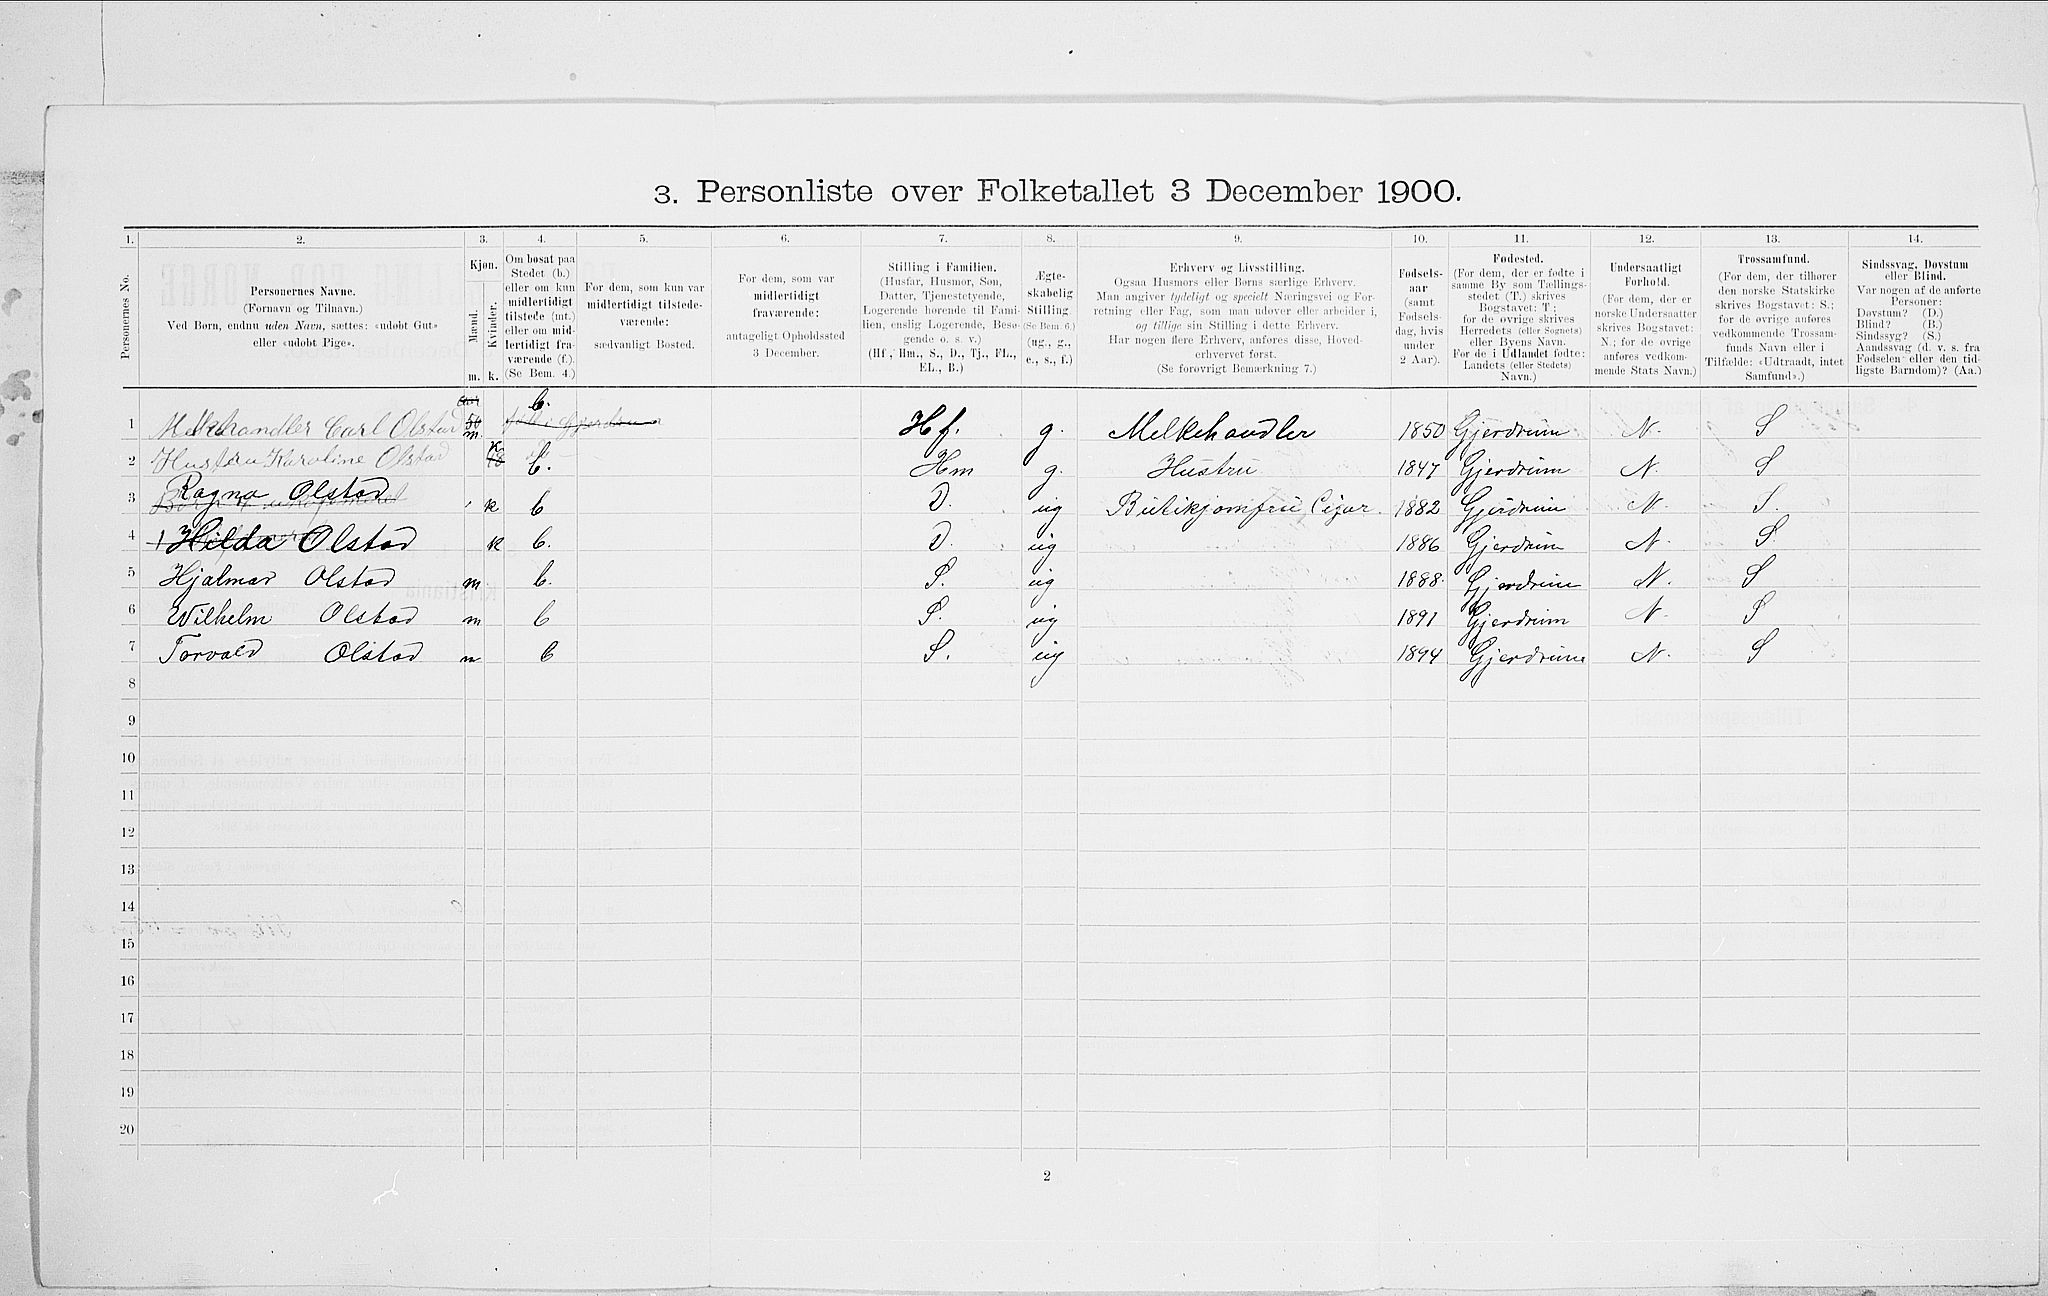 3. Personliste over Folketallet 3 December 1900.
1. 2. 3. 4. 5. 6. 7. 8. 9. 10. 11. 12. 13. 14.
Personernes No.
Personernes Navne.
(Fornavn og Tilnavn.)
Ved Børn, endnu uden Navn, sættes: «udøbt Gut»
eller «udøbt Pige».
Kjøn.
Mænd.
Kvinder.
m. k.
Om bosat paa
Stedet (b.)
eller om kun
midlertidigt
tilstede (mt.)
eller om mid-
lertidigt fra-
værende (f.)
(Se Bem. 4.)
For dem, som kun var
midlertidigt tilstede-
værende:
sædvanligt Bosted.
For dem, som var
midlertidigt
fraværende:
antageligt Opholdssted
3 December.
Stilling i Familien.
(Husfar, Husmor, Søn,
Datter, Tjenestetyende,
Logerende hørende til Fami-
lien, enslig Logerende, Besø-
gende o. s. v.)
(Hf., Hm., S., D., Tj., FL.,
EL., B.)
Ægte-
skabelig
Stilling
(Se Bem. 6.)
(ug., g.,
e., s., f.)
Erhverv og Livsstilling.
Ogsaa Husmors eller Børns særlige Erhverv.
Man angiver tydeligt og specielt Næringsvei og For-
retning eller Fag, som man udøver eller arbeider i,
og tillige sin Stilling i dette Erhverv.
Har nogen flere Erhverv, anføres disse, Hoved-
erhvervet først.
(Se forøvrigt Bemærkning 7.)
Fødsels-
aar
(samt
Fødsels-
dag, hvis
under
2 Aar).
Fødested.
(For dem, der er fødte i
samme By som Tællings-
stedet (T.) skrives
Bogstavet: T.;
for de øvrige skrives
Herredets (eller Sognets)
eller Byens Navn.
For de i Udlandet fødte:
Landets (eller Stedets)
Navn.)
Undersaatligt
Forhold.
(For dem, der er
norske Undersaatter
skrives Bogstavet:
N.; for de øvrige
anføres vedkom-
mende Stats Navn.)
Trossamfund.
(For dem, der tilhører
den norske Statskirke
skrives Bogstavet: S.;
for de øvrige anføres
vedkommende Trossam-
funds Navn eller i
Tilfælde: «Udtraadt, intet
Samfund».)
Sindssvag, Døvstum
eller Blind.
Var nogen af de anførte
Personer:
Døvstum? (D.)
Blind? (B.)
Sindssyg? (S.)
Aandssvag (d. v. s. fra
Fødselen eller den tid-
ligste Barndom)? (Aa.)
1 Melkehandler Carl Olstad 50 m. b. Hf. g. Melkehandler 1850 Gjerdrum N. S
2 Hustru Karoline Olstad k b. Hm g. Hustru 1847 Gjerdrum N. S
3 Ragna Olstad k b D. ug Butikjomfru Cigar. 1882 Gjerdrum N. S.
4 Hilda Olstad k b. D. ug 1886 Gjerdrum N. S
5 Hjalmar Olstad m b. S. ug 1888. Gjerdrum N. S
6 Wilhelm Olstad m b S. ug 1891 Gjerdrum N. S
7 Torvald Olstad m b S. ug 1894 Gjerdrum N. S
8
9
10
11
12
13
14
15
16
17
18
19
20
2